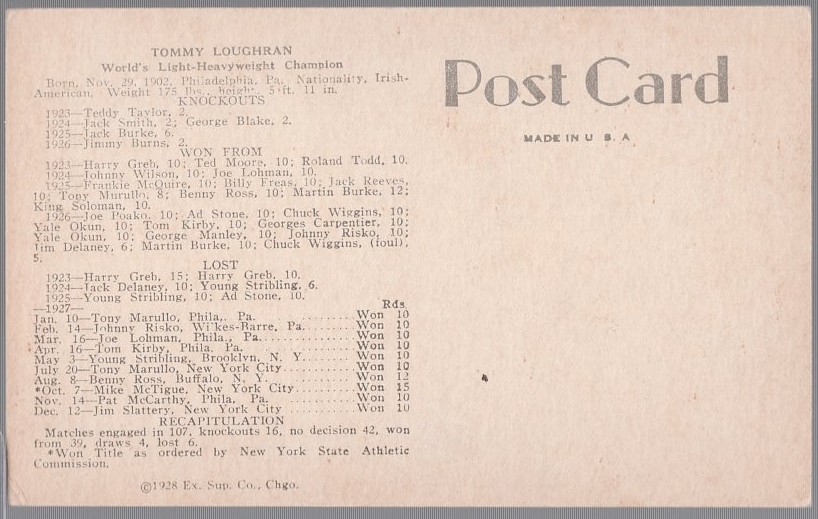 TOMMY LOUGHRAN
World's Light-Heavyweight Champion
Born, Nov. 29, 1902, Philadelphia, Pa. Nationality, Irish-
American, Weight 175 lbs., height, 5 ft. 11 in.
KNOCKOUTS
1923—Teddy Taylor, 2.
1924—Jack Smith, 2; George Blake, 2.
1925—Jack Burke, 6.
1926—Jimmy Burns, 2.
WON FROM
1923—Harry Greb, 10; Ted Moore, 10; Roland Todd, 10.
1924—Johnny Wilson, 10; Joe Lohman, 10.
1925—Frankie McQuire, 10; Billy Freas, 10; Jack Reeves,
10; Tony Murullo, 8; Benny Ross, 10; Martin Burke, 12;
King Soloman, 10.
1926—Joe Poako, 10; Ad Stone, 10; Chuck Wiggins, 10;
Yale Okun, 10; Tom Kirby, 10; Georges Carpentier, 10;
Yale Okun, 10; George Manley, 10; Johnny Risko, 10;
Jim Delaney, 6; Martin Burke, 10; Chuck Wiggins, (foul),
5.
LOST
1923—Harry Greb, 15; Harry Greb, 10.
1924—Jack Delaney, 10; Young Stribling, 6.
1925—Young Stribling, 10; Ad Stone, 10.
—1927— Rds.
Jan. 10—Tony Marullo, Phila,. Pa. ........Won 10
Feb. 14—Johnny Risko, Wilkes-Barre, Pa.........Won 10
Mar. 16—Joe Lohman, Phila., Pa..............Won 10
Apr. 16—Tom Kirby, Phila, Pa. ............Won 10
May 3—Young Stribling, Brooklyn, N. Y.......Won 10
July 20—Tony Marullo, New York City..........Won 10
Aug. 8—Benny Ross, Buffalo, N. Y. ...........Won 12
*Oct. 7—Mike McTigue, New York City........Won 15
Nov. 14—Pat McCarthy, Phila, Pa. ...........Won 10
Dec. 12—Jim Slattery, New York City ..........Won 10
RECAPITULATION
Matches engaged in 107, knockouts 16, no decision 42, won
from 39, draws 4, lost 6.
*Won Title as ordered by New York State Athletic
Commission.
©1928 Ex. Sup. Co., Chgo.
Post Card
MADE IN U S. A